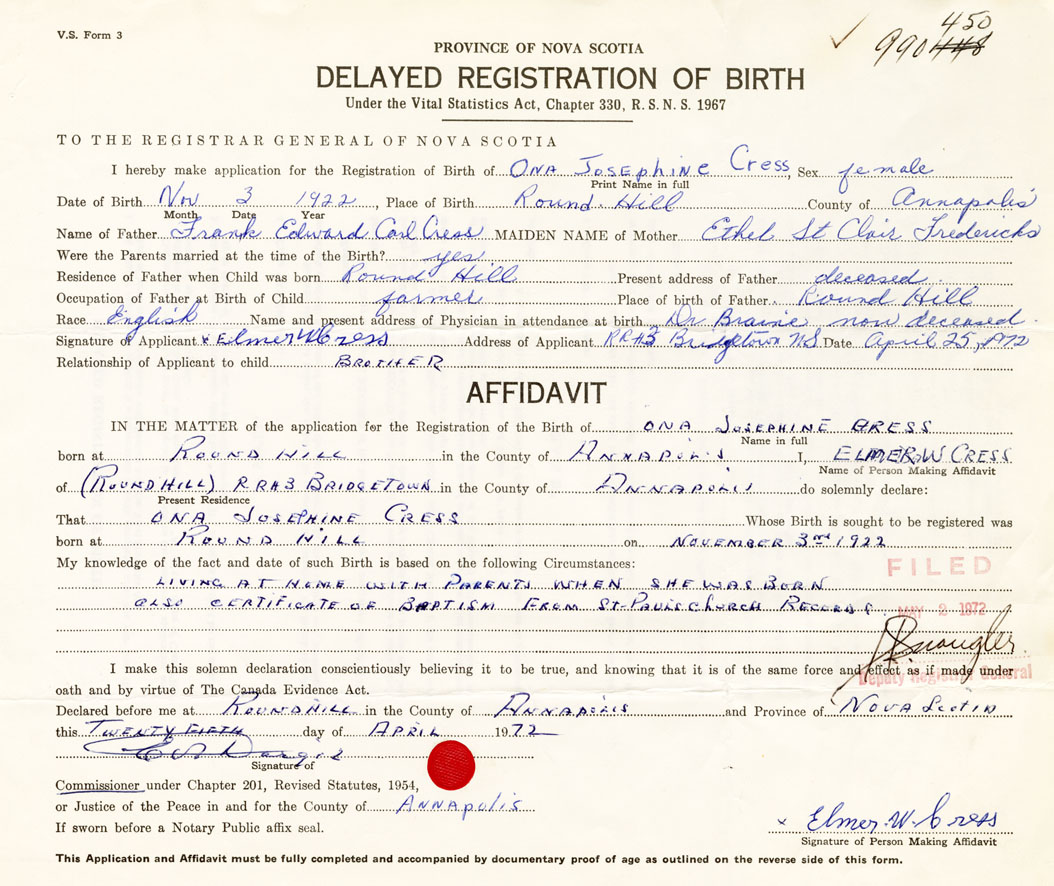 V.S. Form 3
450
990 448
PROVINCE OF NOVA SCOTIA
DELAYED REGISTRATION OF BIRTH
Under the Vital Statistics Act, Chapter 330, R. S. N. S. 1967
TO THE REGISTRAR GENERAL OF NOVA SCOTIA
I hereby make application for the Registration of Birth of ONA Josephine Cress, Sex female
Print Name in full
Date of Birth Nov 3 1922, Place of Birth Round Hill County of Annapolis
Month Date Year
Name of Father Frank Edward Carl Cress MAIDEN NAME of Mother Ethel St Clair Fredericks
Were the Parents married at the time of the Birth? yes
Residence of Father when Child was born Round Hill Present address of Father deceased
Occupation of Father at Birth of Child farmer Place of birth of Father Round Hill
Race English Name and present address of Physician in attendance at birth Dr Braine now deceased.
Signature of Applicant x Elmer W Cress Address of Applicant RR#3 Bridgetown NS Date April 25, 1972
Relationship of Applicant to child BROTHER
AFFIDAVIT
IN THE MATTER of the application for the Registration of the Birth of ONA JOSEPHINE CRESS
Name in full
born at ROUND HILL in the County of ANNAPOLIS I, ELMER W CRESS
Name of Person Making Affidavit
of (ROUND HILL) RR#3 BRIDGETOWN in the County of ANNAPOLIS do solemnly declare:
Present Residence
That ONA JOSEPHINE CRESS Whose Birth is sought to be registered was
born at ROUND HILL on NOVEMBER 3rd 1922
My knowledge of the fact and date of such Birth is based on the following Circumstances:
LIVING AT HOME WITH PARENTS WHEN SHE WAS BORN
ALSO CERTIFICATE OF BAPTISM FROM ST-PAULS CHURCH RECORDS.
FILED
MAY 2 1972
Deputy Registrar General
I make this solemn declaration conscientiously believing it to be true, and knowing that it is of the same force and effect as if made under
oath and by virtue of The Canada Evidence Act.
Declared before me at ROUNDHILL in the County of ANNAPOLIS and Province of NOVA SCOTIA
this TWENTY FIFTH day of APRIL 1972
Signature of
Commissioner under Chapter 201, Revised Statutes, 1954,
or Justice of the Peace in and for the County of ANNAPOLIS
If sworn before a Notary Public affix seal.
x Elmer W. Cress
Signature of Person Making Affidavit
This Application and Affidavit must be fully completed and accompanied by documentary proof of age as outlined on the reverse side of this form.